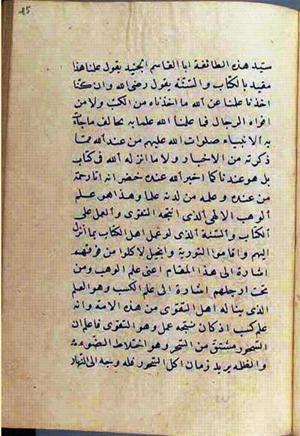 سيد هذه الطائفة ابا القاسم الجنيد يقول علمنا هذا
مقيد بالكتاب والسنة يقول رضي الله وان كنا
اخذنا علمنا عن الله ما اخذناه من الكتب ولا من
افواه الرجال فما علمنا الله علما به يخالف ما جآءت
به الانبيآء صلوات الله عليهم من عند الله مما
ذكرته من الاخبار ولا ما انزله الله في كتاب
بل هو عندنا كما اخبر الله عن عبده خضر انه اتاه رحمة
من عنده وعلمه من لدنه علما وهذا هو علم
الوهب الالهي الذي انتجه التقوى والعمل على
الكتاب والسنة الذي لو عمل اهل الكتاب بما انزل
اليهم واقاموا التورية والانجيل لاكلوا من فوقهم
اشارة الى هذا المقام اعني علم الوهب ومن
تحت ارجلهم اشارة الى علم الكسب وهو العلم
الذي يناله اهل التقوى من هذه الامة وانه
علم كسب اذ كان نتيجة عمل وهو التقوى فاعلم ان
السحور مشتق من السحر وهو اختلاط الضوء
والظلمة يريد زمان اكل السحور فله وجه الى النهار